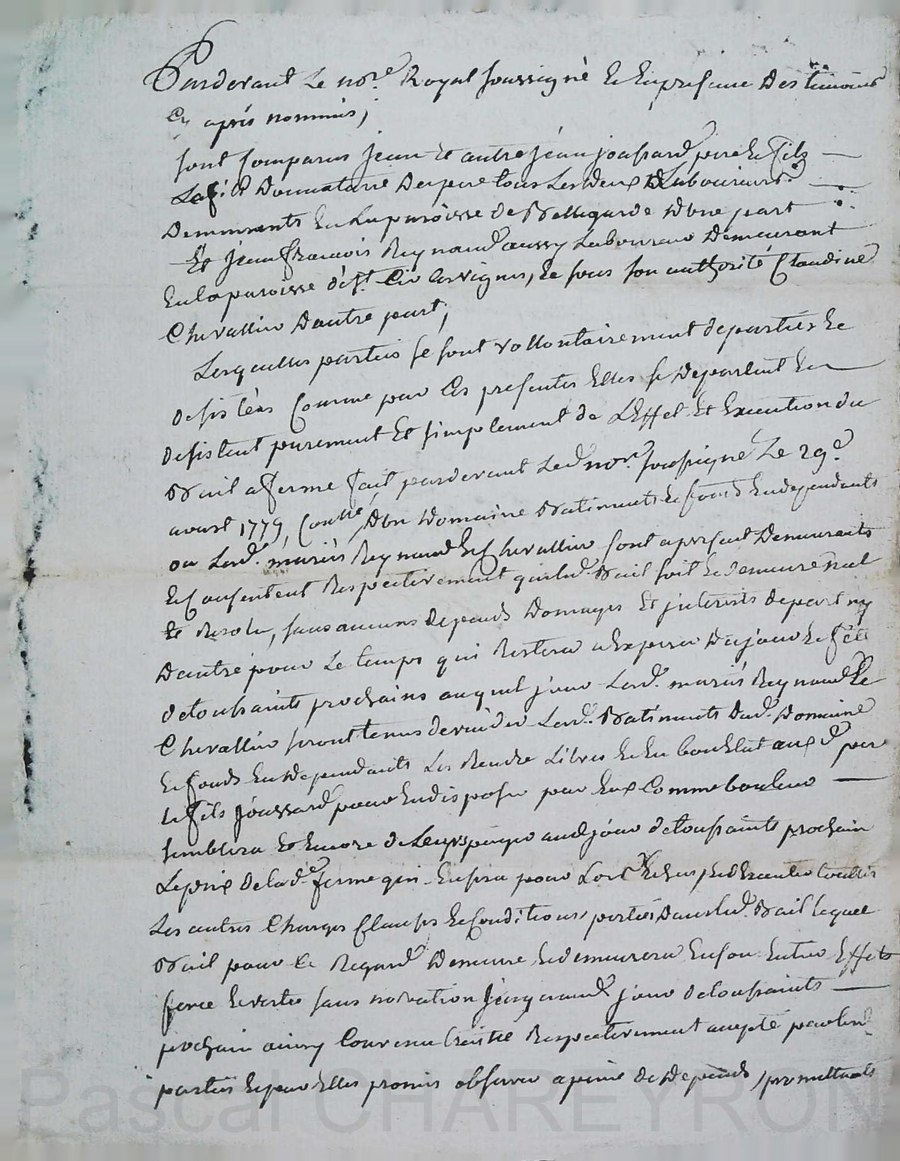 Pardevant Le nore. Royal soussigné et en presence des temoins
cy après nommés,
sont comparus jean et autre jean joussard pere et fils
Donnataire de pere tous Les deux Laboureurs
demeurants en La paroisse de Bellegarde d'une part
Et jean françois Reynaud aussy Laboureur demeurant
en la paroisse de st. Cir Les vignes, et sous son authorité Claudine
Chevallier d'autre part,
Lesquelles parties se sont vollontairement departies et
desistées comme par ces presentes Elles se departent et
desistent purement Et simplement de L'Effet Et Execution du
Bail a ferme fait pardevant Led. nore. soussigné Le 29e.
aoust 1779, d'un Domaine Batiments et fonds en dependants
ou Lesd. mariés Reynaud et Chevallier sont a present Demeurants
et consentent Respectivement que led. Bail soit et demeure nul
et Resolu, sans aucuns depends Domages Et jnterests de part ny
d'autre pour Le temps qui Restera a Expirer du jour et fête
de toussaints prochains auquel jour Lesd. mariés Reynaud et
Chevallier seront tenus de vuider Lesd. Batiments dud. Domaine
et fonds en dependants Les Rendre Libres et en bon Etat auxd. pere
et fils joussard pour en disposer par Eux comme bon leur
semblera Et encore de Leur payer aud. jour de toussaints prochain
Le prix de Lad. ferme qui pour Lors et Executer touttes
Les autres Charges Clauses et Conditions portées dans led. Bail Lequel
Bail pour ce Regard Demeure et demeurera en son Entier Effet
force et vertu sans novation jusqu'aud. jour de toussaints
prochain ainsy Convenu Respectivement accepté par lesd.
parties et par Elles promis observer a peine de depends, promettants
Pascal CHAREYRON